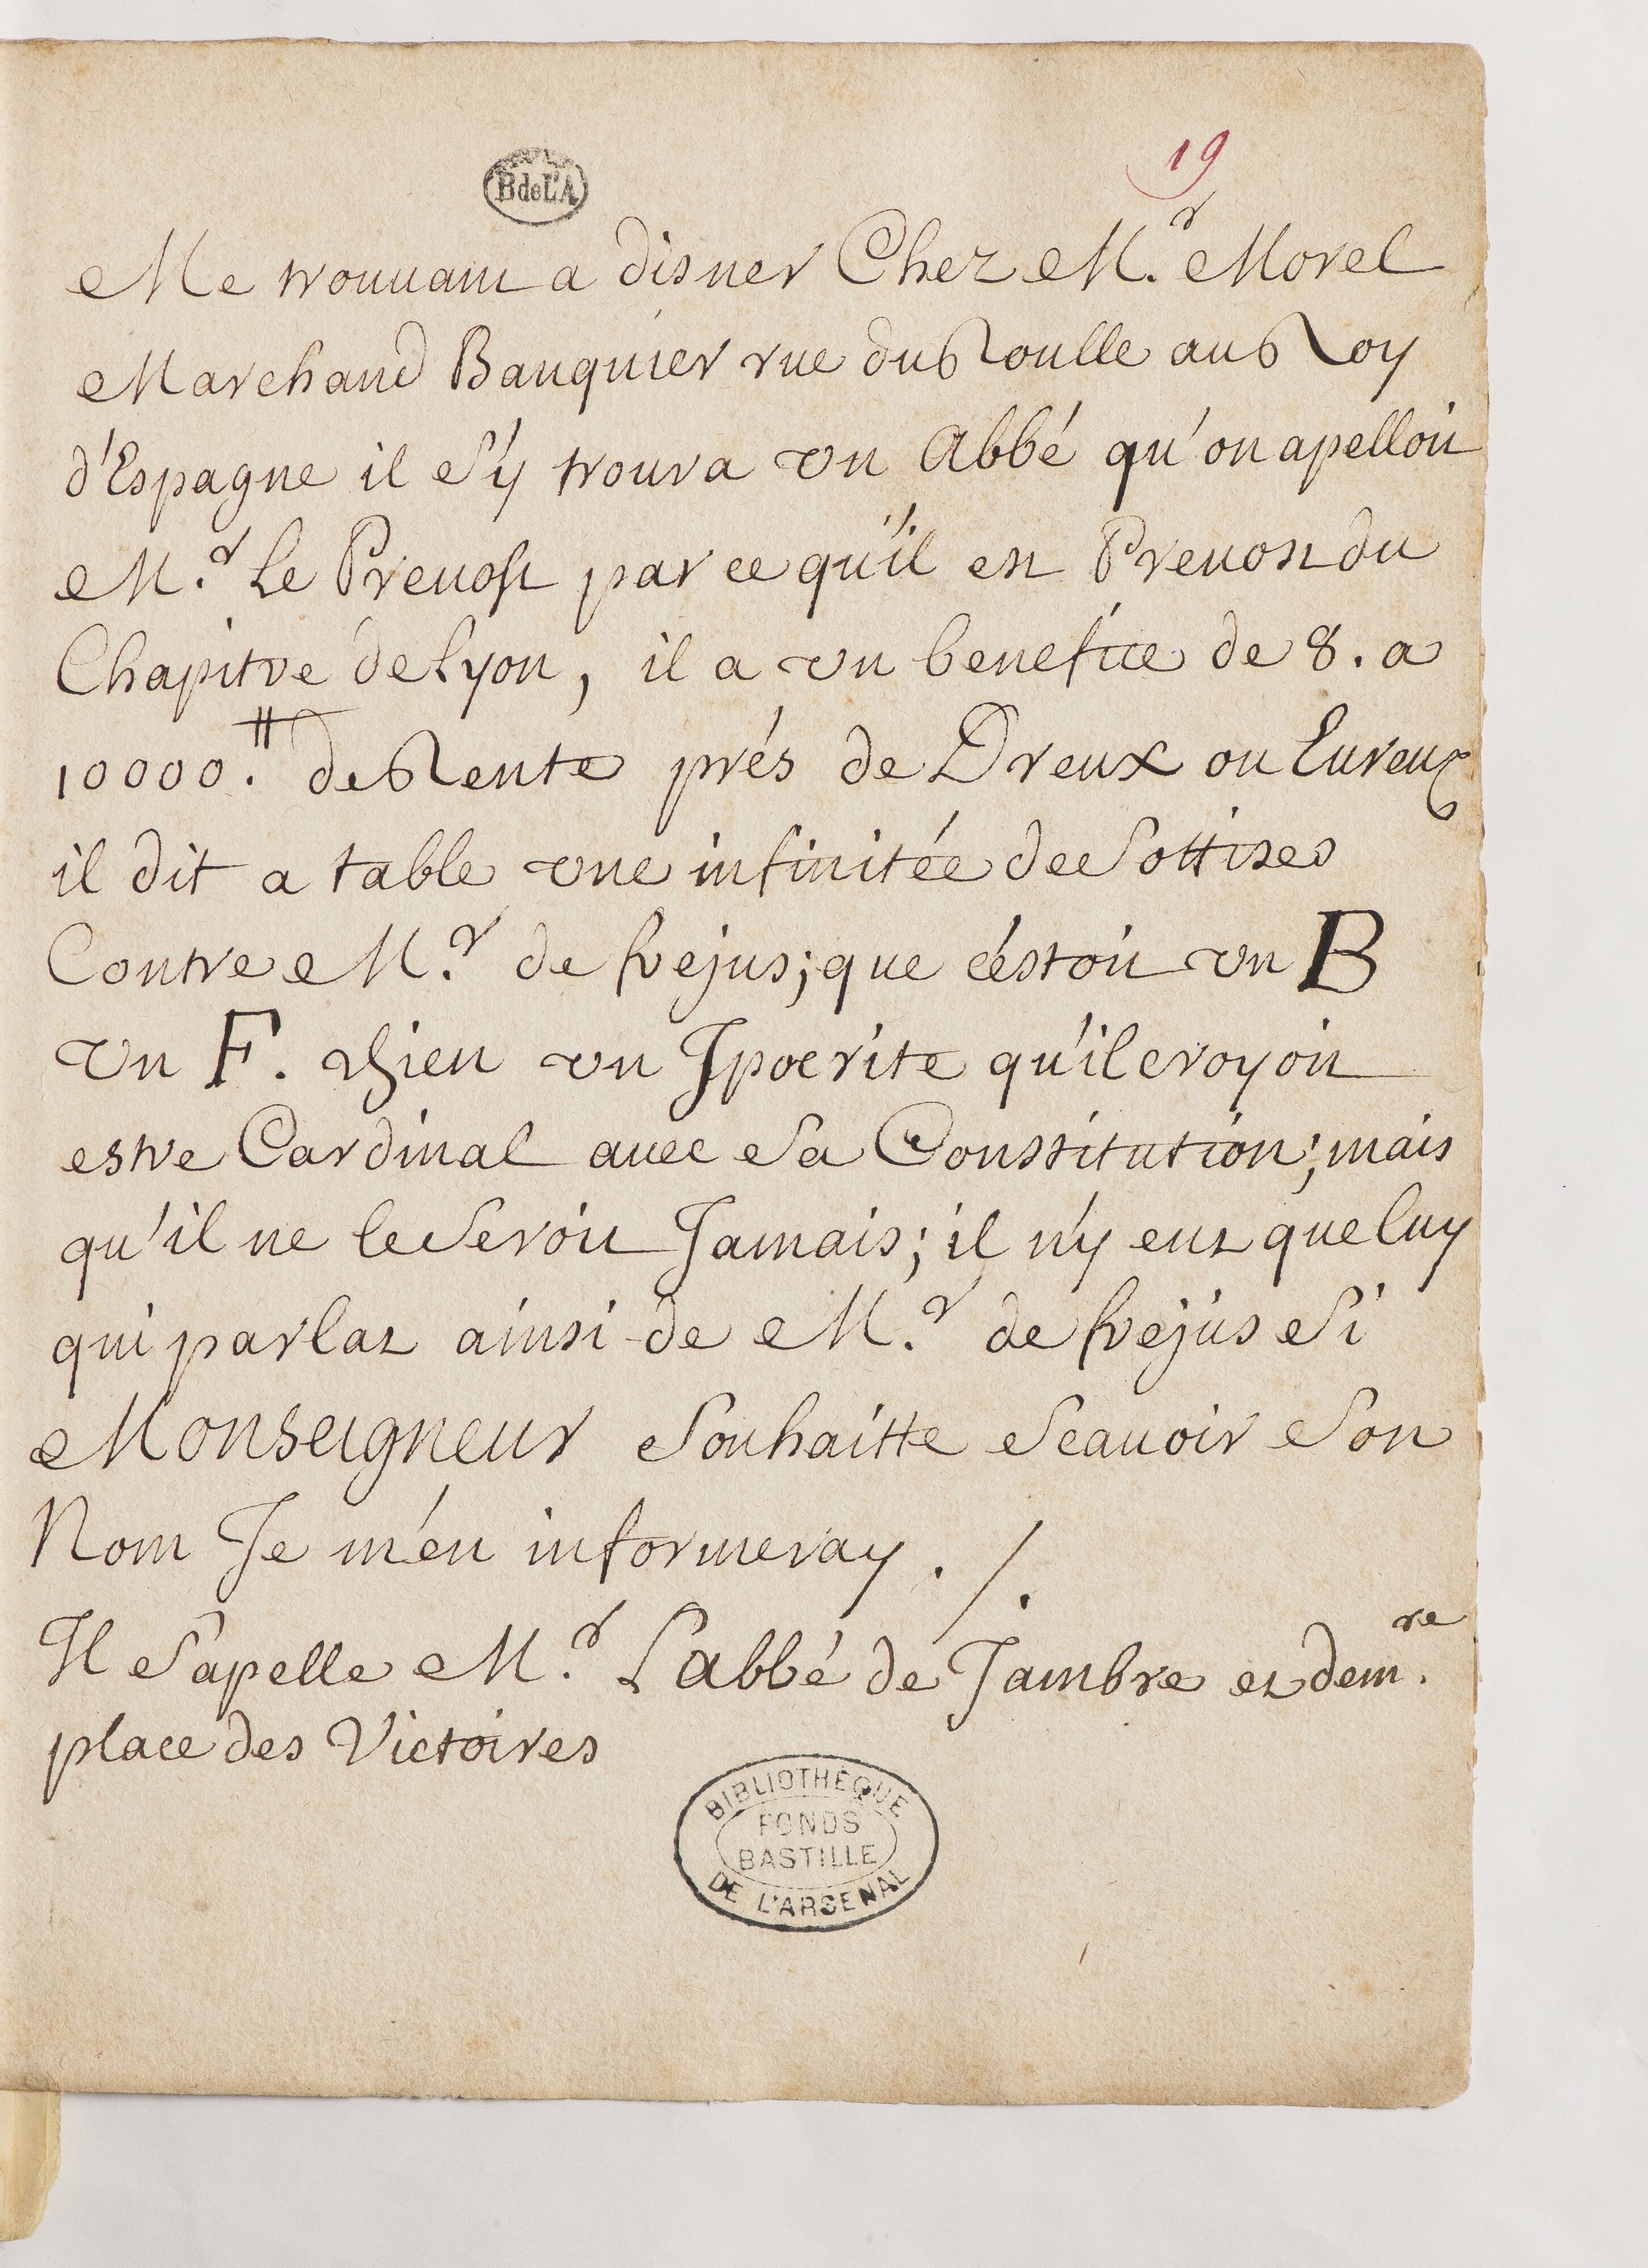 BdeL'A
19
Me trouuant a disner Chez M.r Morel
Marchand Banquier rue du Roulle au Roy
d'Espagne il s'y trouva vn Abbé qu'on apelloit
M.r Le Preuost par ce qu'il est Preuost du
Chapitre de Lyon, il a vn benefice de 8. a
10000.# de Rente prés de Dreux ou Eureux
il dit a table vne infinitée de Sottises
Contre M.r de frejus; que c'éstoit vn B
vn F. chien vn Ipocrite qu'il croyoit
estre Cardinal auec Sa Constitution; mais
qu'il ne le Seroit Jamais; il n'y eut que luy
qui parlat ainsi de M.r de frejus Si
Monseigneur Souhaitte Scauoir Son
Nom Je m'en informeray ./.
Il S'apelle M.r L'abbé de Jambre et dem.re
place des Victoires
BIBLIOTHÈQUE
FONDS
BASTILLE
DE L'ARSENAL